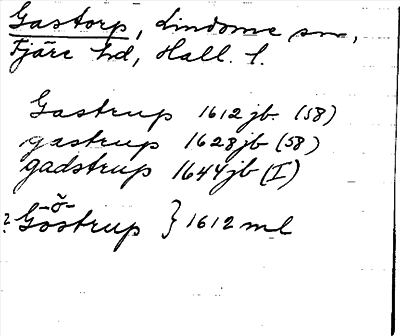 Gastorp, Lindome sn,
Fjäre hd, Hall. l.
Gastrup 1612 jb. (58)
gastrup 1628 jb (58)
gadstrup 1644 jb (I)
-õ-
? Göstrup } 1612 ml